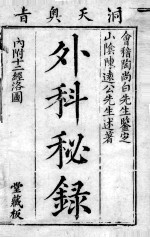 洞天奧旨
會稽陶尚白先生鑒定
山陰陳遠公先生述著
外科秘錄
內附十二經洛圖
堂藏板